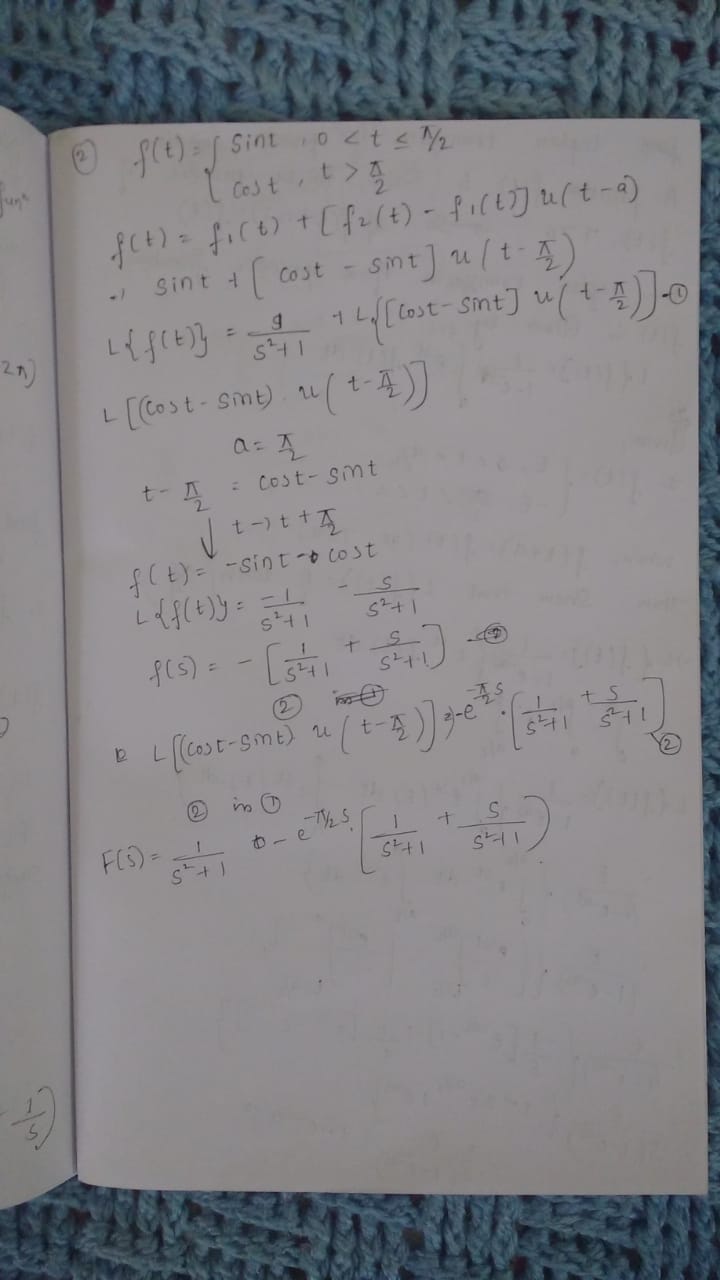 ② f(t) = { sint , 0 < t ≤ π/2
cost , t > π/2
f(t) = f₁(t) + [f₂(t) - f₁(t)] u(t-a)
sint + [cost - sint] u(t - π/2)
L{f(t)} = 1/(s²+1) + L{[cost-sint] u(t-π/2)] -①
L[(cost-sint) u(t-π/2)]
a = π/2
t - π/2 = cost-sint
↓ t→t+π/2
f(t) = -sint - cost
L{f(t)} = -1/(s²+1) - s/(s²+1)
f(s) = -[1/(s²+1) + s/(s²+1)] -②
②
L[(cost-sint) u(t-π/2)] = -e^(-π/2 s) · [1/(s²+1) + s/(s²+1)]
②
② in ①
F(s) = 1/(s²+1) - e^(-π/2 s) · [1/(s²+1) + s/(s²+1)]
2π)
1/s)